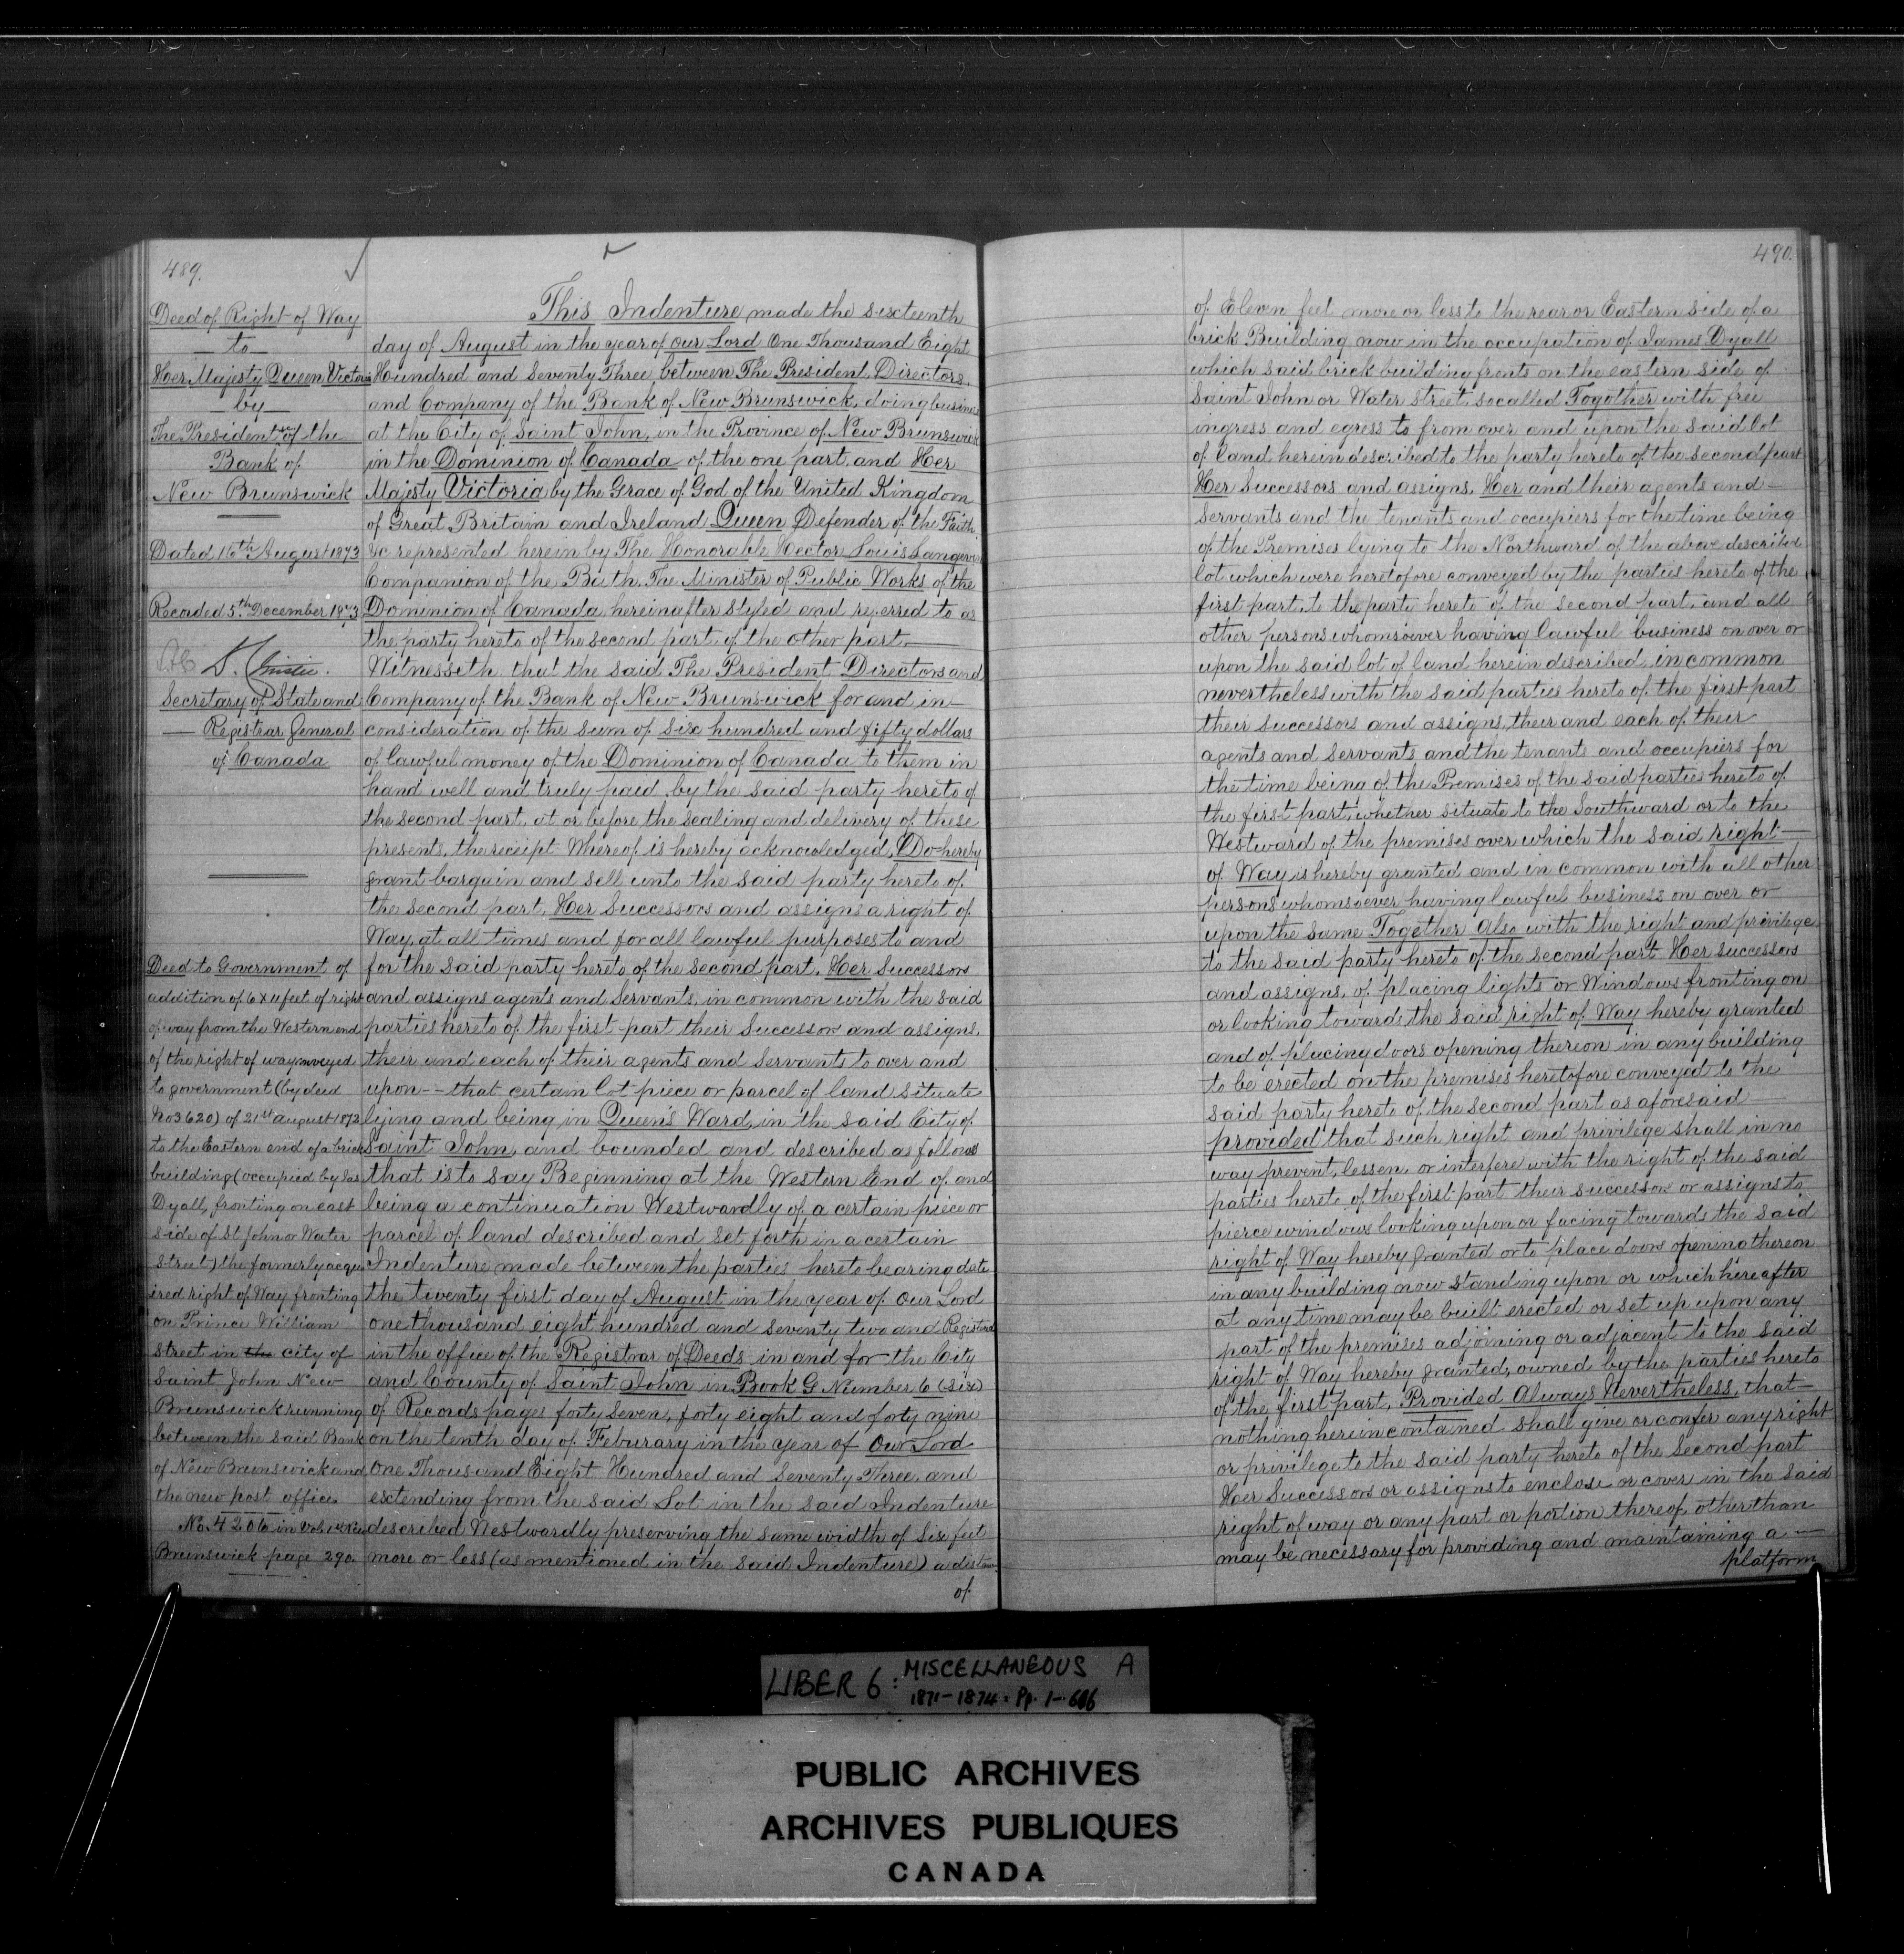 489.
Deed of Right of Way
to
Her Majesty Queen Victoria
by
The President &c of the
Bank of
New Brunswick
Dated 16th August 1873
Recorded 5th December 1873
Secretary of State and
Registrar General
of Canada
Deed to Government of
addition of 6 x 11 feet of right
of way from the Western end
of the right of way conveyed
to government (by deed
No 3620) of 21st August 1872
to the Eastern end of a brick
building (occupied by Jas
Dyall, fronting on east
side of St John or Water
street) the formerly acqu
ired right of Way fronting
on Prince William
street in the city of
Saint John New
Brunswick running
between the said Bank
of New Brunswick and
the new post office
No. 4206 in Vol 1st New
Brunswick page 290.
This Indenture made the sixteenth
day of August in the year of our Lord One Thousand Eight
Hundred and Seventy Three between The President, Directors,
and Company of the Bank of New Brunswick, doing business
at the City of Saint John, in the Province of New Brunswick
in the Dominion of Canada of the one part, and Her
Majesty Victoria by the Grace of God of the United Kingdom
of Great Britain and Ireland Queen Defender of the Faith
&c represented herein by The Honorable Hector Louis Langevin
Companion of the Bath, The Minister of Public Works of the
Dominion of Canada, hereinafter styled and referred to as
the party hereto of the second part of the other part
Witnesseth that the said The President Directors and
Company of the Bank of New Brunswick for and in
consideration of the sum of Six hundred and fifty dollars
of lawful money of the Dominion of Canada to them in
hand well and truly paid by the said party hereto of
the second part, at or before the sealing and delivery of these
presents, the receipt Whereof is hereby acknowledged, Do hereby
grant bargain and sell unto the said party hereto of
the second part, Her Successors and assigns a right of
Way, at all times and for all lawful purposes to and
for the said party hereto of the second part, Her Successors
and assigns agents and Servants, in common with the said
parties hereto of the first part their Successors and assigns,
their and each of their agents and Servants to over and
upon -- that certain lot piece or parcel of land situate
lying and being in Queen's Ward, in the said City of
Saint John, and bounded and described as follows
that is to say Beginning at the Western End of and
being a continuation Westwardly of a certain piece or
parcel of land described and set forth in a certain
Indenture made between the parties hereto bearing date
the twenty first day of August in the year of our Lord
one thousand eight hundred and seventy two and Registered
in the office of the Registrar of Deeds in and for the City
and County of Saint John in Book G Number 6 (six)
of Records pages forty seven, forty eight and forty nine
on the tenth day of Feburary in the year of our Lord
One Thousand Eight Hundred and Seventy Three, and
extending from the said Lot in the said Indenture
described Westwardly preserving the same width of Six feet
more or less (as mentioned in the said Indenture) a distance
of
490.
of Eleven feet more or less to the rear or Eastern side of a
brick Building now in the occupation of James Dyall
which said brick building fronts on the eastern side of
Saint John or Water street, so called Together with free
ingress and egress to from over and upon the said lot
of land herein described to the party hereto of the second part
Her Successors and assigns, Her and their agents and
servants and the tenants and occupiers for the time being
of the Premises lying to the Northward of the above described
lot which were heretofore conveyed by the parties hereto of the
first part, to the party hereto of the second part, and all
other persons whomsoever having lawful business on over or
upon the said lot of land herein described, in common
nevertheless with the said parties hereto of the first part
their successors and assigns, their and each of their
agents and servants and the tenants and occupiers for
the time being of the Premises of the said parties hereto of
the first part, whether situate to the Southward or to the
Westward of the premises over which the said right
of Way is hereby granted and in common with all other
persons whomsoever having lawful business on over or
upon the same Together Also with the right and privilege
to the said party hereto of the second part Her successors
and assigns, of placing lights or Windows fronting on
or looking towards the said right of Way hereby granted
and of placing doors opening thereon in any building
to be erected on the premises heretofore conveyed to the
said party hereto of the second part as aforesaid
provided that such right and privilege shall in no
way prevent, lessen or interfere with the right of the said
parties hereto of the first part their successors or assigns to
pierce windows looking upon or facing towards the said
right of Way hereby granted or to place doors opening thereon
in any building now standing upon or which hereafter
at any time may be built erected or set up upon any
part of the premises adjoining or adjacent to the said
right of Way hereby granted, owned by the parties hereto
of the first part, Provided Always Nevertheless, that
nothing herein contained shall give or confer any right
or privilege to the said party hereto of the Second part
Her Successors or assigns to enclose or cover in the said
right of way or any part or portion thereof, other than
may be necessary for providing and maintaining a
platform
LIBER 6: MISCELLANEOUS A
1871-1874: Pp. 1-606
PUBLIC ARCHIVES
ARCHIVES PUBLIQUES
CANADA